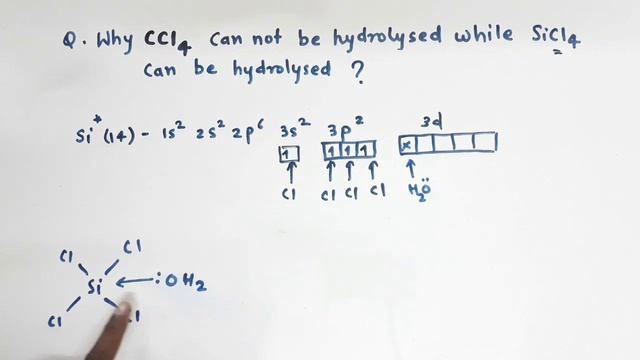 Q. Why CCl4 can not be hydrolysed while SiCl4
can be hydrolysed ?
Si* (14) - 1s² 2s² 2p⁶ 3s² 3p² 3d
1 1 1 1 x
Cl Cl Cl Cl H2Ö
Cl Cl
Si ← :OH2
Cl Cl